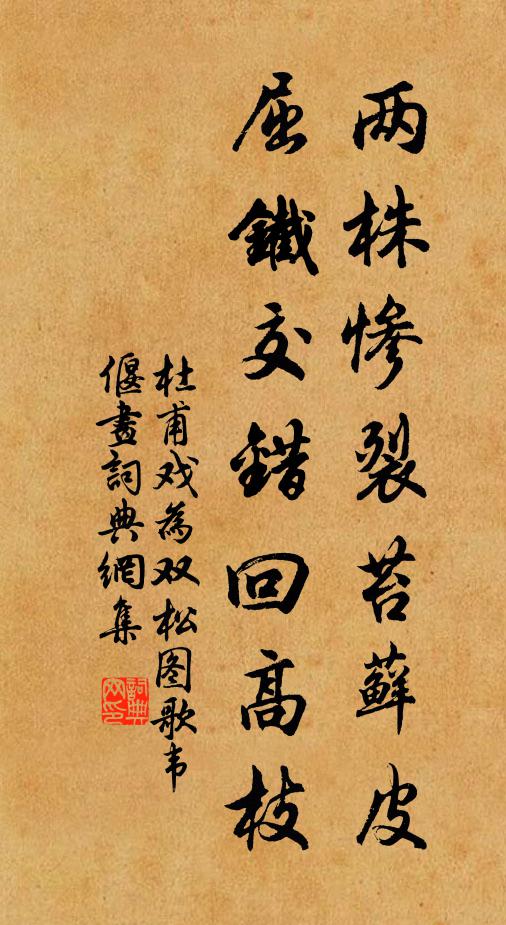 两株惨裂苔藓皮
屈鐵交錯回高枝
杜甫戏為双松图歌韦
偃畫詞典網集
詞典网印